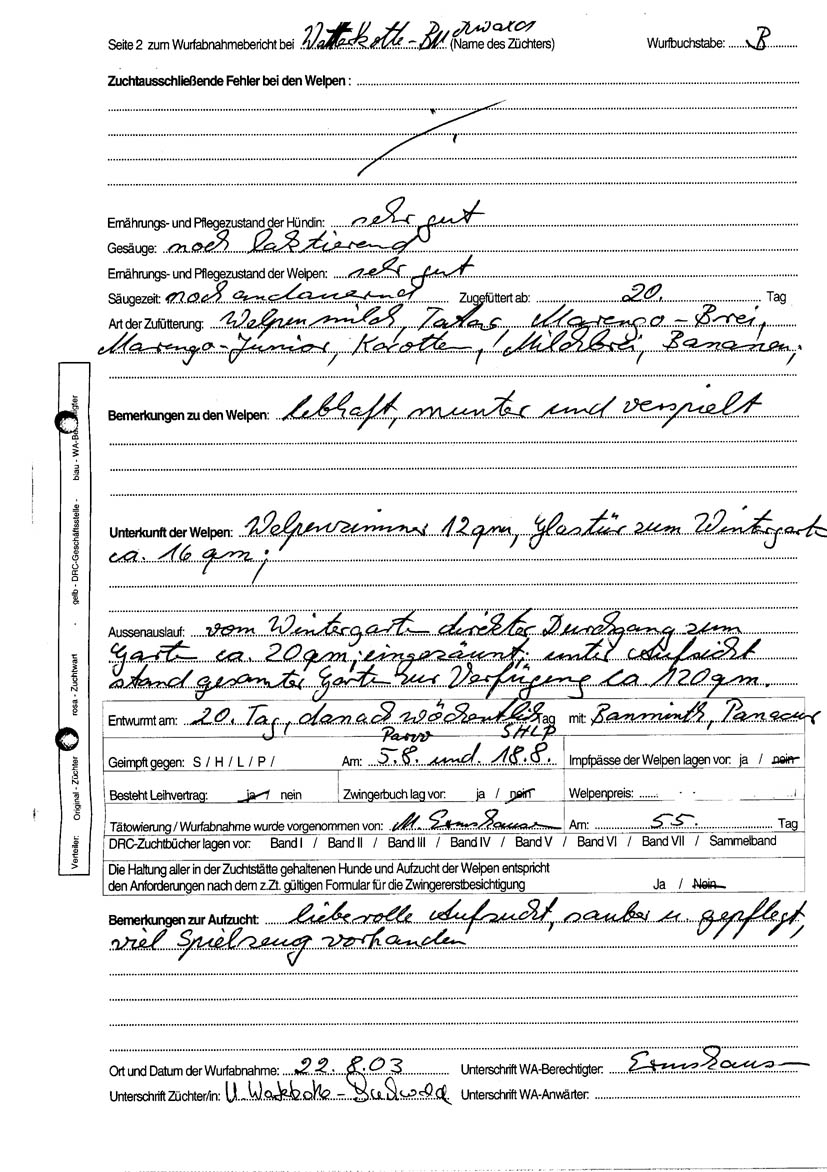 Seite 2 zum Wurfabnahmebericht bei (Name des Züchters) Wurfbuchstabe: B
Zuchtausschließende Fehler bei den Welpen :
Ernährungs- und Pflegezustand der Hündin: sehr gut
Gesäuge: noch laktierend
Ernährungs- und Pflegezustand der Welpen: sehr gut
Säugezeit: noch andauernd Zugefüttert ab: 20. Tag
Art der Zufütterung: Welpenmilch, Tatar, Marengo-Brei,
Marengo-Junior, Karotten, Milchbrei, Bananen;
Bemerkungen zu den Welpen: lebhaft, munter und verspielt
Unterkunft der Welpen: Welpenzimmer 12qm, Glastür zum Wintergarten
ca. 16 qm;
Aussenauslauf: vom Wintergarten direkter Durchgang zum
Garten ca. 20qm; eingezäunt; unter Aufsicht
stand gesamter Garten zur Verfügung ca 120qm.
Entwurmt am: 20. Tag, danach wöchentlich Tag mit: Banminth, Panacur
Parvo SHLP
Geimpft gegen: S / H / L / P / Am: 5.8. und 18.8. Impfpässe der Welpen lagen vor: ja / nein
Besteht Leihvertrag: ja / nein Zwingerbuch lag vor: ja / nein Welpenpreis:
Tätowierung / Wurfabnahme wurde vorgenommen von: M. Ermshaus Am: 55. Tag
DRC-Zuchtbücher lagen vor: Band I / Band II / Band III / Band IV / Band V / Band VI / Band VII / Sammelband
Die Haltung aller in der Zuchtstätte gehaltenen Hunde und Aufzucht der Welpen entspricht
den Anforderungen nach dem z.Zt. gültigen Formular für die Zwingererstbesichtigung Ja / Nein
Bemerkungen zur Aufzucht: liebevolle Aufzucht, sauber u. gepflegt,
viel Spielzeug vorhanden
Ort und Datum der Wurfabnahme: 22.8.03 Unterschrift WA-Berechtigter: Ermshaus
Unterschrift Züchter/in: U. Unterschrift WA-Anwärter:
Verteiler: Original - Züchter rosa - Zuchtwart - gelb - DRC-Geschäftsstelle - blau - WA-Berechtigter